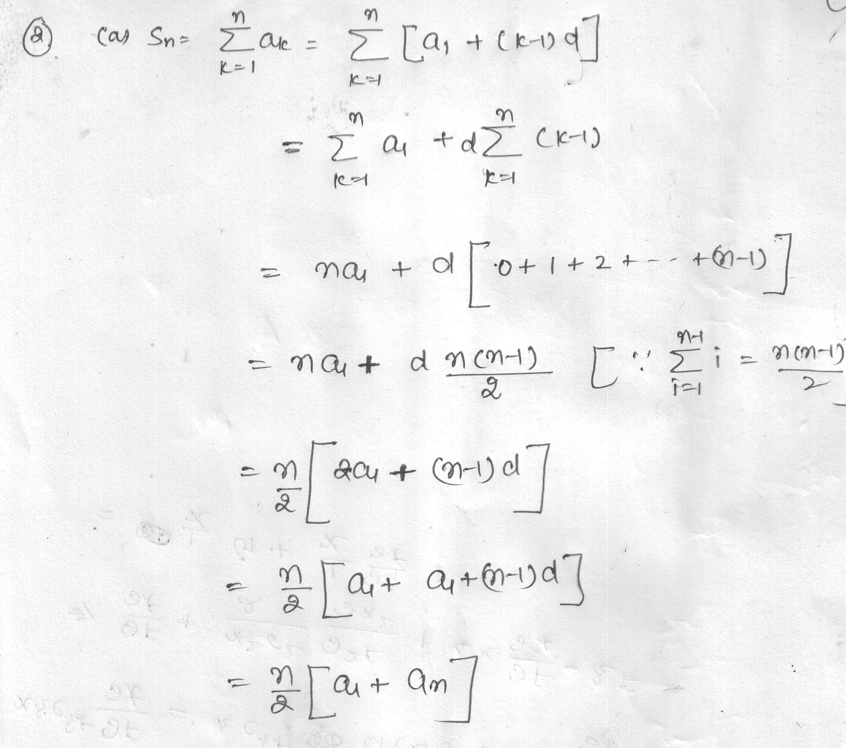 ② (a) Sn = n∑k=1 ak = n∑k=1 [a1 + (k-1)d]
= n∑k=1 a1 + d n∑k=1 (k-1)
= na1 + d [0 + 1 + 2 + --- + (n-1)]
= na1 + d n(n-1)/2 [∵ n-1∑i=1 i = n(n-1)/2]
= n/2 [2a1 + (n-1)d]
= n/2 [a1 + a1 + (n-1)d]
= n/2 [a1 + an]